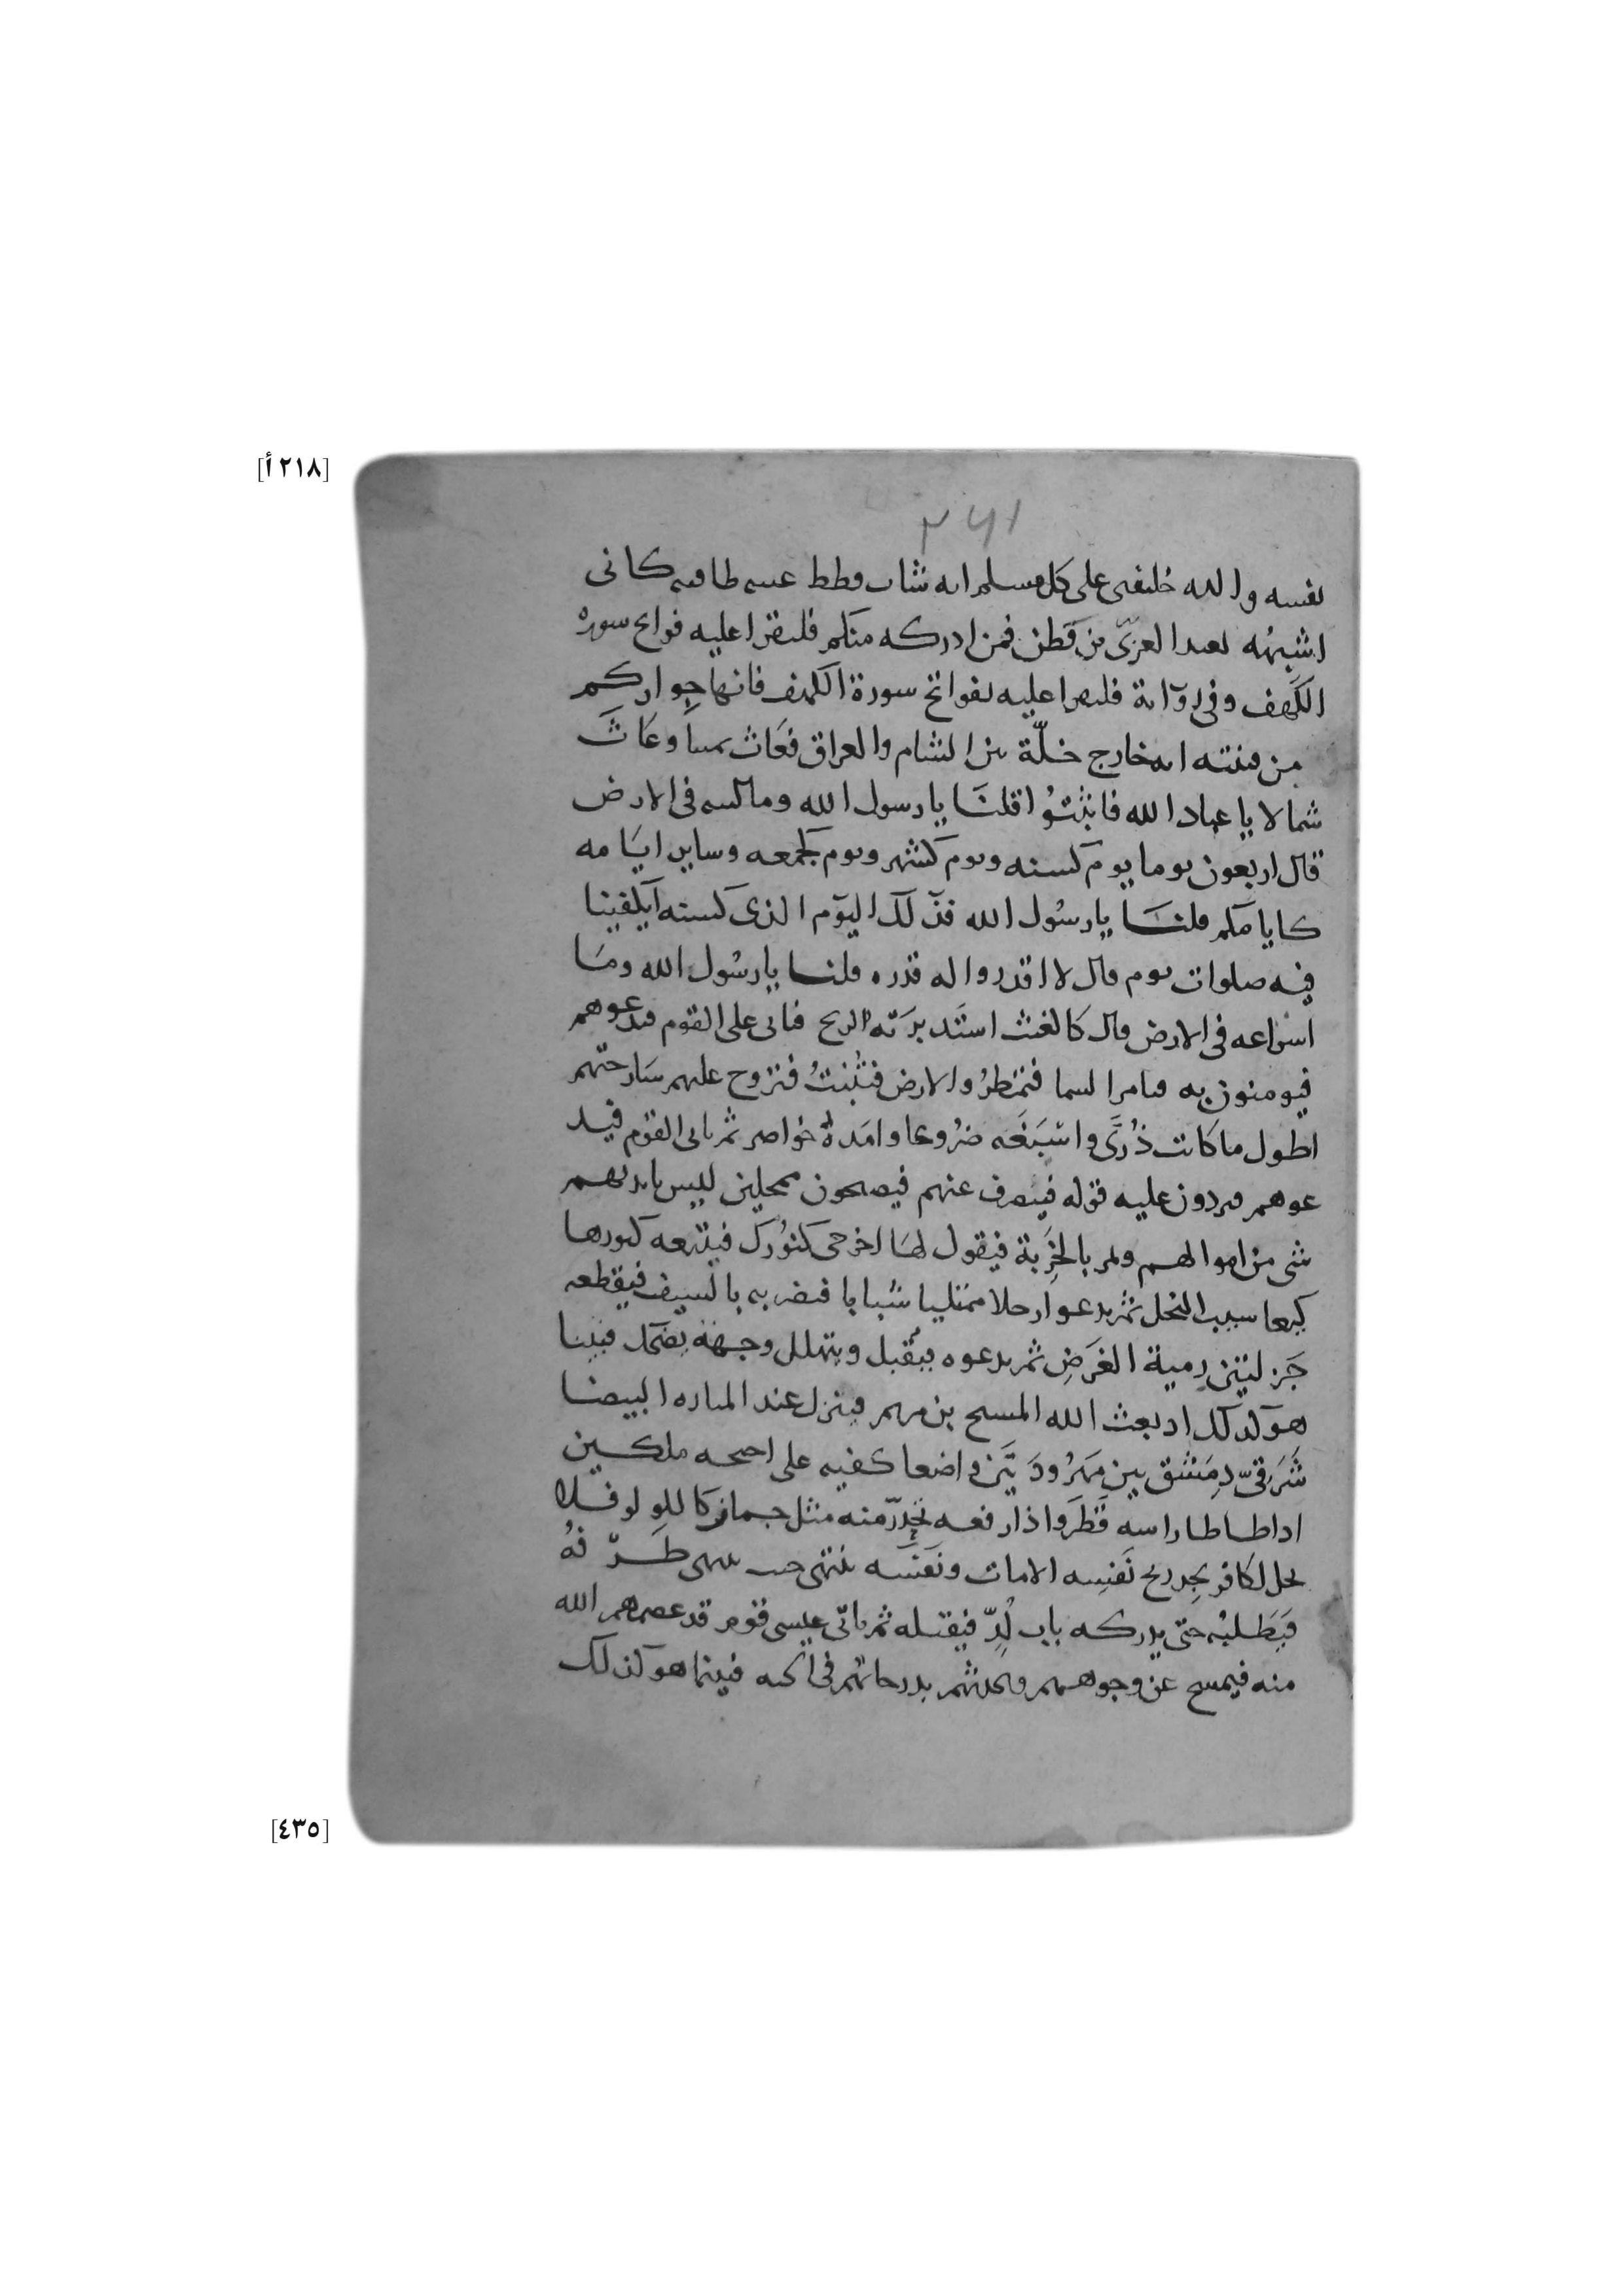 [٢١٨ أ]
٢٦١
نفسه والله خليفتى على كل مسلم انه شاب قطط عينه طافيه كانى
اشبهُه بعبد العزّى بن قَطَن فمن ادركه منكم فليقرا عليه فواتح سوره
الكَهف وفى روَاية فليقرا عليه بفواتح سورة الكهف فانها جِواركم
من فتنته انه خارج خلّة بين الشام والعراق فعَاث يمينا وعَاثَ
شمالا يا عباد الله فاثبتُوُا قلنَا يا رسول الله وما لبثه فى الارض
قال اربعون يوما يوم كسنه ويوم كشهر ويوم كجمعه وساير ايَامه
كايامكم قلنَا يا رسُول الله فذَلك اليَوم الذى كسنه ايكفينا
فيه صلوات يوم قال لا اقدروا له قدره قلنا يا رسُول الله ومَا
اسْراعه فى الارض قال كالغيث استَدبرَته الريح فياتى على القوم فيدعوهم
فيومنون به فيامر السما فتمطرُ والارض فتُنبتُ فتروح عليهم سَارحتهم
اطول ما كانت ذُرًى واسْبَغَه ضرُوعا وامَدهُ خواصر ثم ياتى القوم فيد
عوهم فيردون عليه قوله فينصرف عنهم فيصبحون ممحلين لييس بايديهم
شى من اموالهم ويمر بالخَرِبَة فيقول لهَا اخرجى كنوُزك فيتبعه كنوزها
كيعاسيب النحل ثم يدعوا رجلا ممتليا شبابا فيضربه بالسيف فيقطعه
جَزلتين رمية الغَرَضِ ثم يدعوه فيُقبل ويتهلل وجهه يضحَك فبينا
هو كَذلك اذ بعث الله المسيح بن مريم فينزل عند المناره البيضا
شَرَقىّ دِمَشق بين مَهرُودَتَين واضعا كفيه على اجنحه ملكين
اذا طاطا راسه قَطَر واذا رفعه تحَدّر منه مثل جمان كاللولو فلا
يحل لكافر يجِد ريح نَفَسِه الا مات ونَفَسَه ينتهى حيث ينتهى طَرْفهُ
فيَطلبُه حتى يدركه بباب لُدّ فيقتله ثم ياتى عيسى قوم قد عصمهم الله
منه فيمسح عن وجوههم ويحدثهم بدرجاتهم فى الجنه فبينما هو كذلك
[٤٣٥]